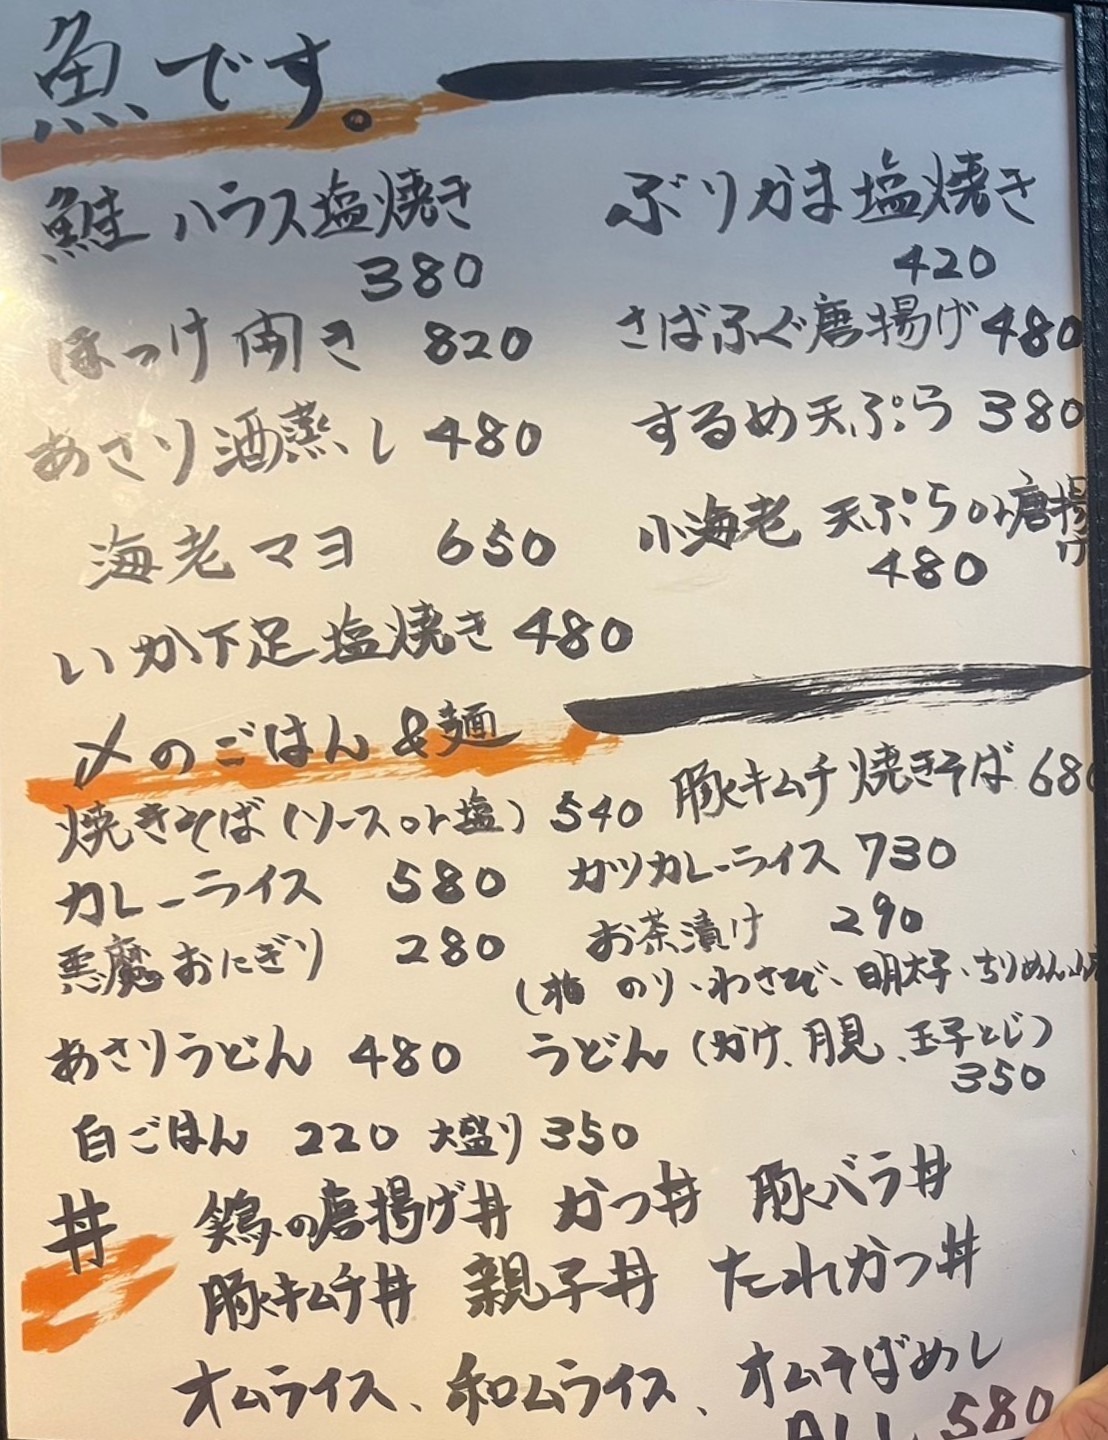 魚です。
鮭ハラス塩焼き
380
ぶりかま塩焼き
420
ほっけ開き 820
さばふぐ唐揚げ 480
あさり酒蒸し 480
するめ天ぷら 380
海老マヨ 650
小海老 天ぷらor唐揚げ
480
いか下足塩焼き 480
〆のごはん&麺
焼きそば(ソースor塩) 540
豚キムチ焼きそば 680
カレーライス 580
カツカレーライス 730
悪魔おにぎり 280
お茶漬け 290
(梅 のり、わさび、明太子、ちりめん山
あさりうどん 480
うどん(かけ、月見、玉子とじ)
350
白ごはん 220 大盛り 350
丼
鶏の唐揚げ丼 かつ丼 豚バラ丼
豚キムチ丼 親子丼 たれかつ丼
オムライス、和ムライス、オムそばめし
ALL 580